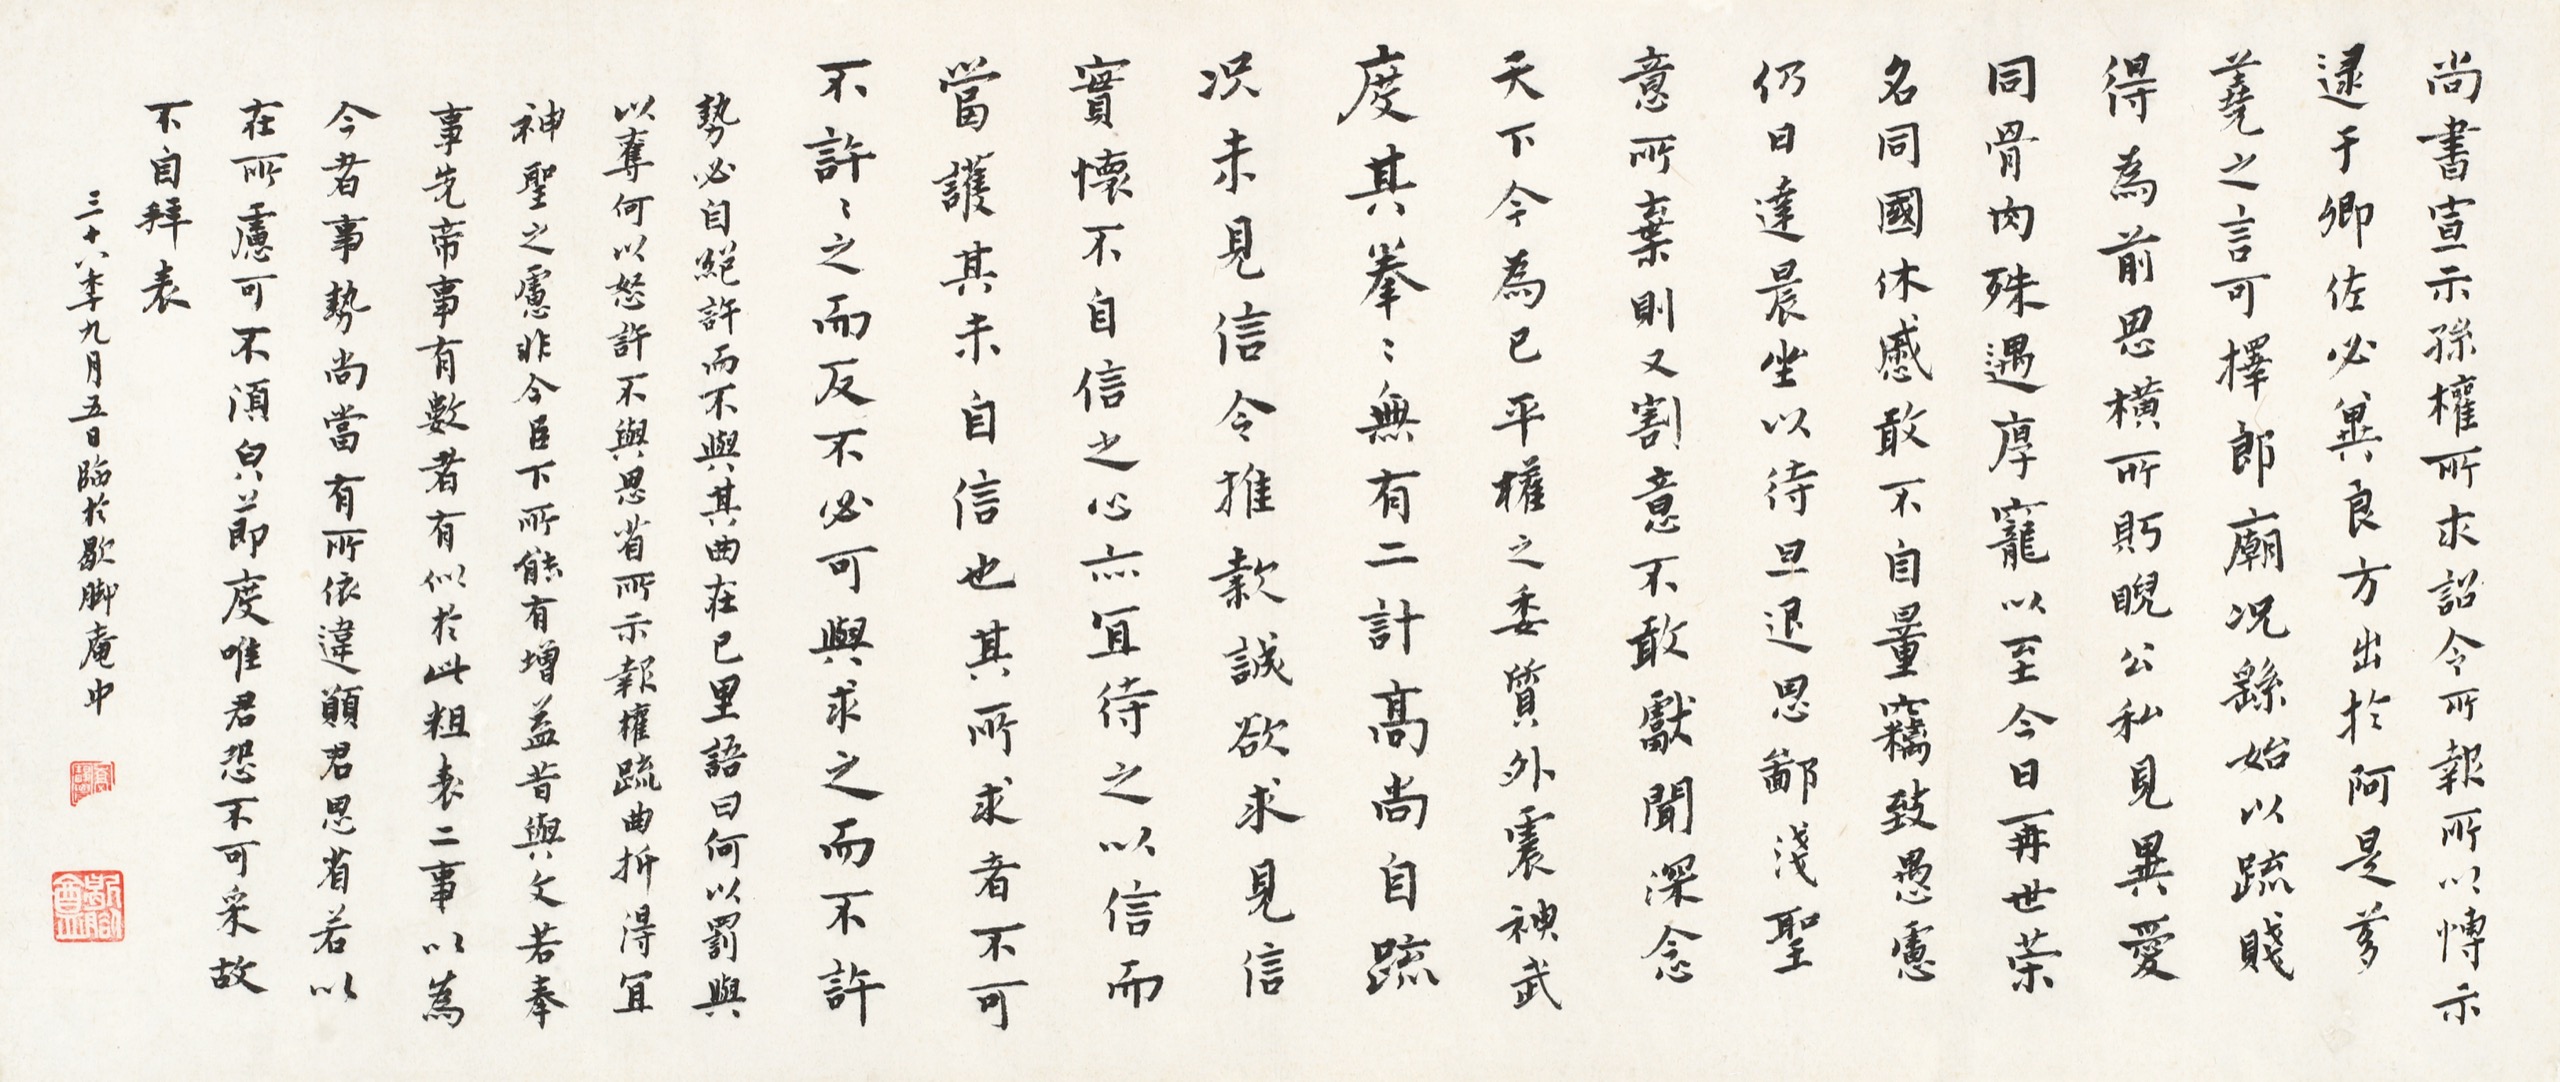 尚書宣示孫權所求詔令所報所以博示
逮于卿佐必冀良方出於阿是芻
蕘之言可擇郎廟况繇始以疏賤
得為前恩橫所眄睨公私見異愛
同骨肉殊遇厚寵以至今日再世荣
名同國休慼敢不自量竊致愚慮
仍日達晨坐以待旦退思鄙淺聖
意所棄則又割意不敢獻聞深念
天下今為已平權之委質外震神武
度其拳〻無有二計高尚自疏
况未見信今推款誠欲求見信
實懷不自信之心亦宜待之以信而
當護其未自信也其所求者不可
不許〻之而反不必可與求之而不許
勢必自絕許而不與其曲在已里語曰何以罰與
以奪何以怒許不與思省所示報權疏曲折得宜
神聖之慮非今臣下所能有增益昔與文若奉
事先帝事有數者有似於此粗表二事以為
今者事勢尚當有所依違願君思省若以
在所慮可不須皃節度唯君恐不可采故
不自拜表
三十八年九月五日臨於歇脚庵中